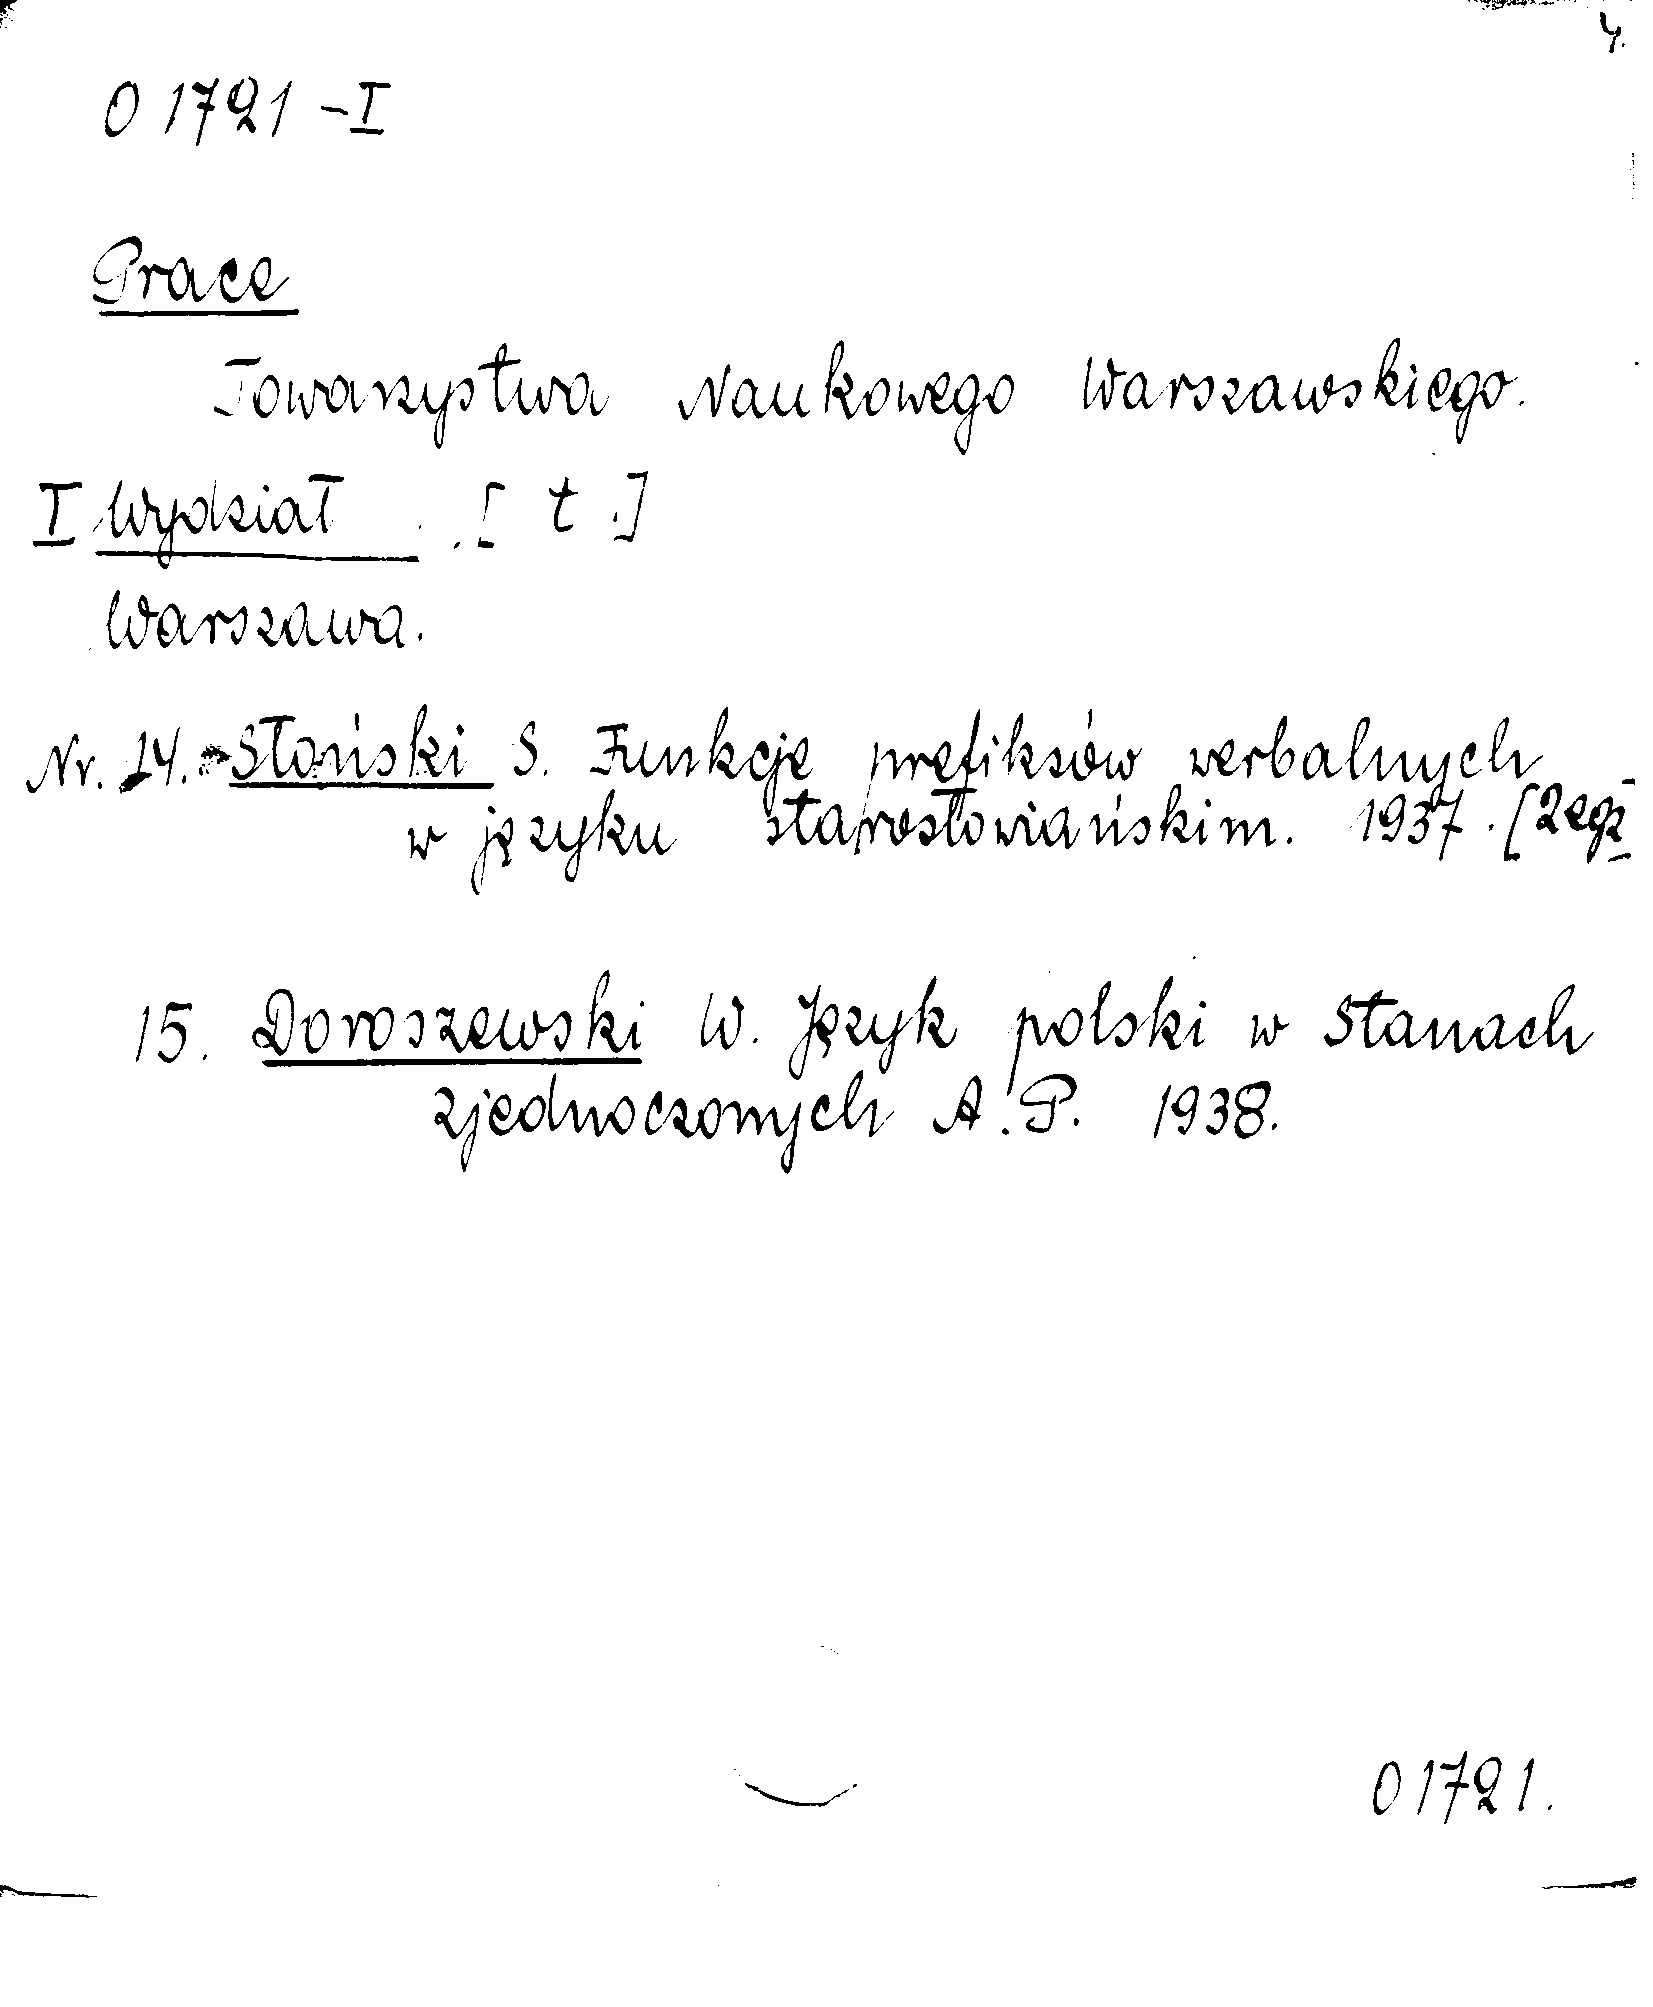 4.
O 1721 - I
Prace
Towarzystwa Naukowego Warszawskiego.
I Wydział . [ t .]
Warszawa.
Nr. 14. Słoński S. Funkcje prefiksów werbalnych
w języku starosłowiańskim. 1937. [2 egz]
15. Doroszewski W. Język polski w Stanach
zjednoczonych A. P. 1938.
O 1721.